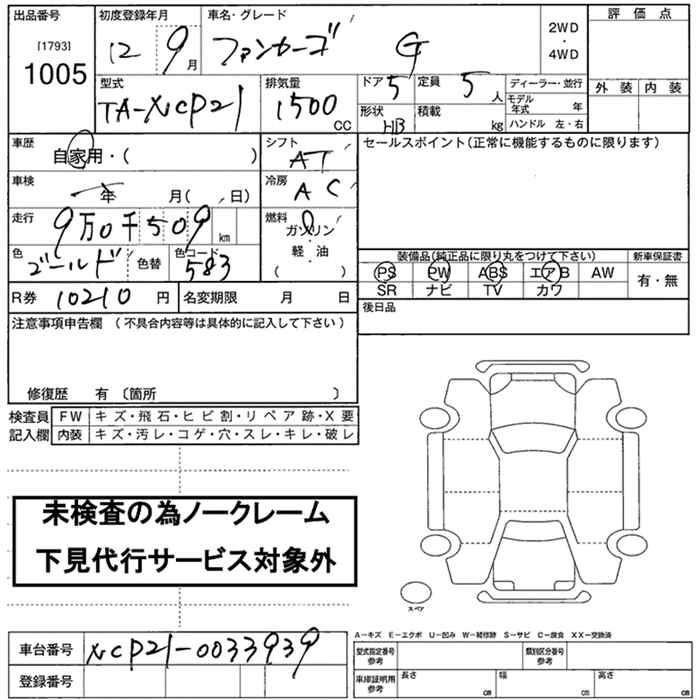 出品番号 初度登録年月 車名・グレード 2WD・4WD 評価点
[1793] 1005 12 9月 ファンカーゴ G
外装 内装
型式 排気量 ドア 5 定員 5人 ディーラー・並行
TA-NCP21 1500 CC 形状 HB 積載 kg モデル年式 年
ハンドル 左・右
車歴 自家用・( ) シフト AT セールスポイント(正常に機能するものに限ります)
車検 年 月( 日) 冷房 AC
走行 9万0千509km 燃料 ガソリン
色 ゴールド 色替 色コード 583 軽・油
( )
装備品(純正品に限り丸をつけて下さい) 新車保証書
PS PW ABS エアB AW 有・無
SR ナビ TV カワ
R券 10210円 名変期限 月 日 後日品
注意事項申告欄 (不具合内容等は具体的に記入して下さい)
修復歴 有 〔箇所 〕
検査員 FW キズ・飛石・ヒビ割・リペア跡・X要
記入欄 内装 キズ・汚レ・コゲ・穴・スレ・キレ・破レ
未検査の為ノークレーム
下見代行サービス対象外
スペア
A-キズ E-エクボ U-凹み W-補修跡 S-サビ C-腐食 XX-交換済
車台番号 NCP21-0033939 型式指定番号 参考 類別区分番号 参考
登録番号 車庫証明用 参考 長さ cm 幅 cm 高さ cm